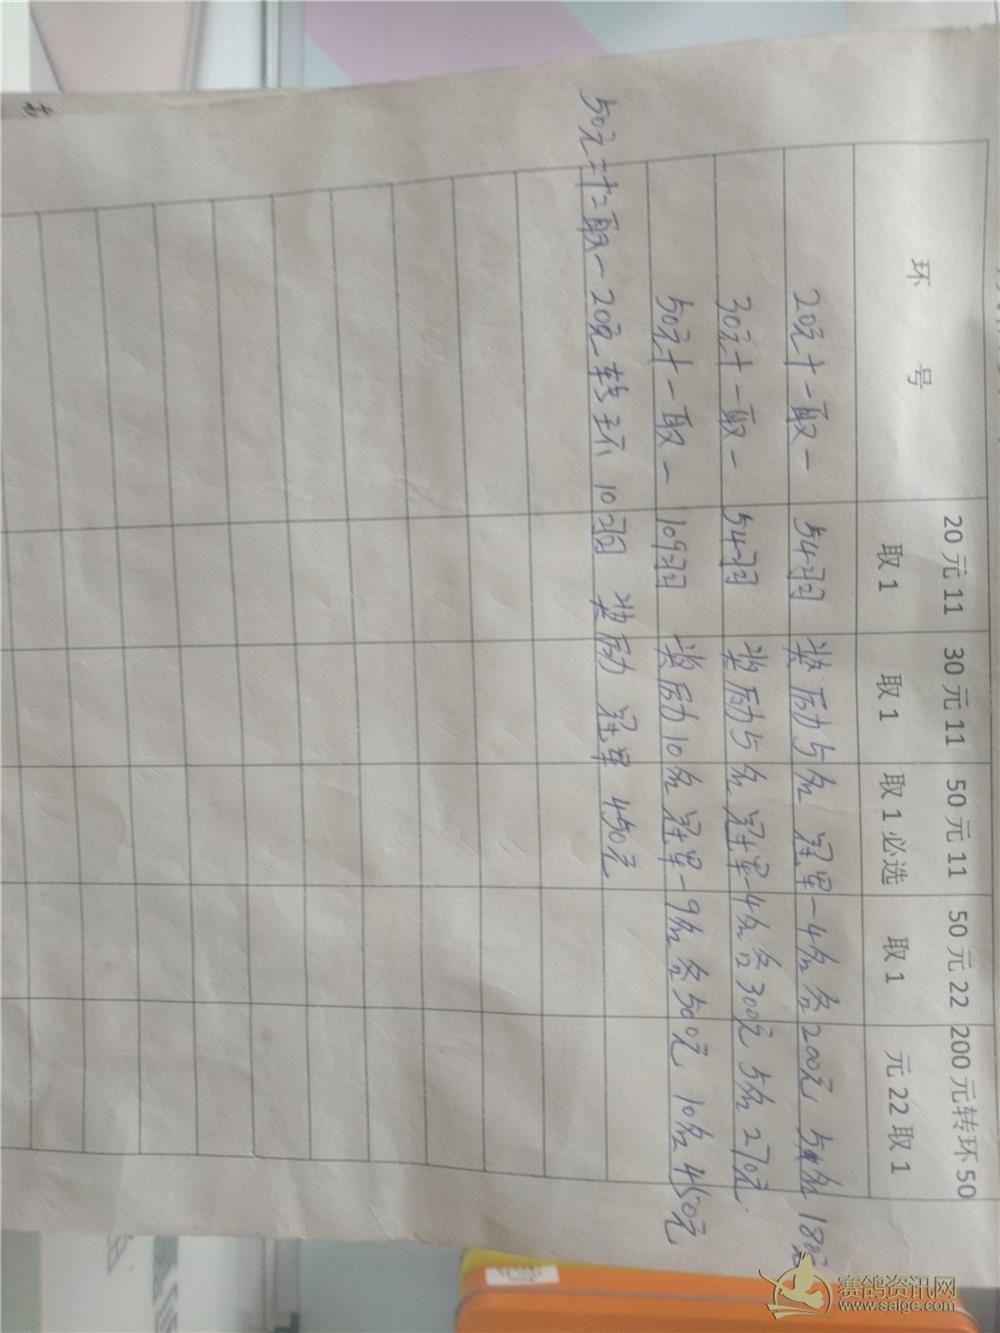 环 号
20元11 30元11 50元11 50元22 200元转环50
取1 取1 取1必选 取1 元22取1
20元十一取一 54羽 奖励5名 冠军-4名各200元 5名180元
30元十一取一 54羽 奖励5名 冠军-4名各300元 5名270元
50元十一取一 109羽 奖励10名 冠军-9名各500元 10名450元
50元二十二取一 200元转环 10羽 奖励 冠军 450元
赛鸽资讯网
www.saige.com